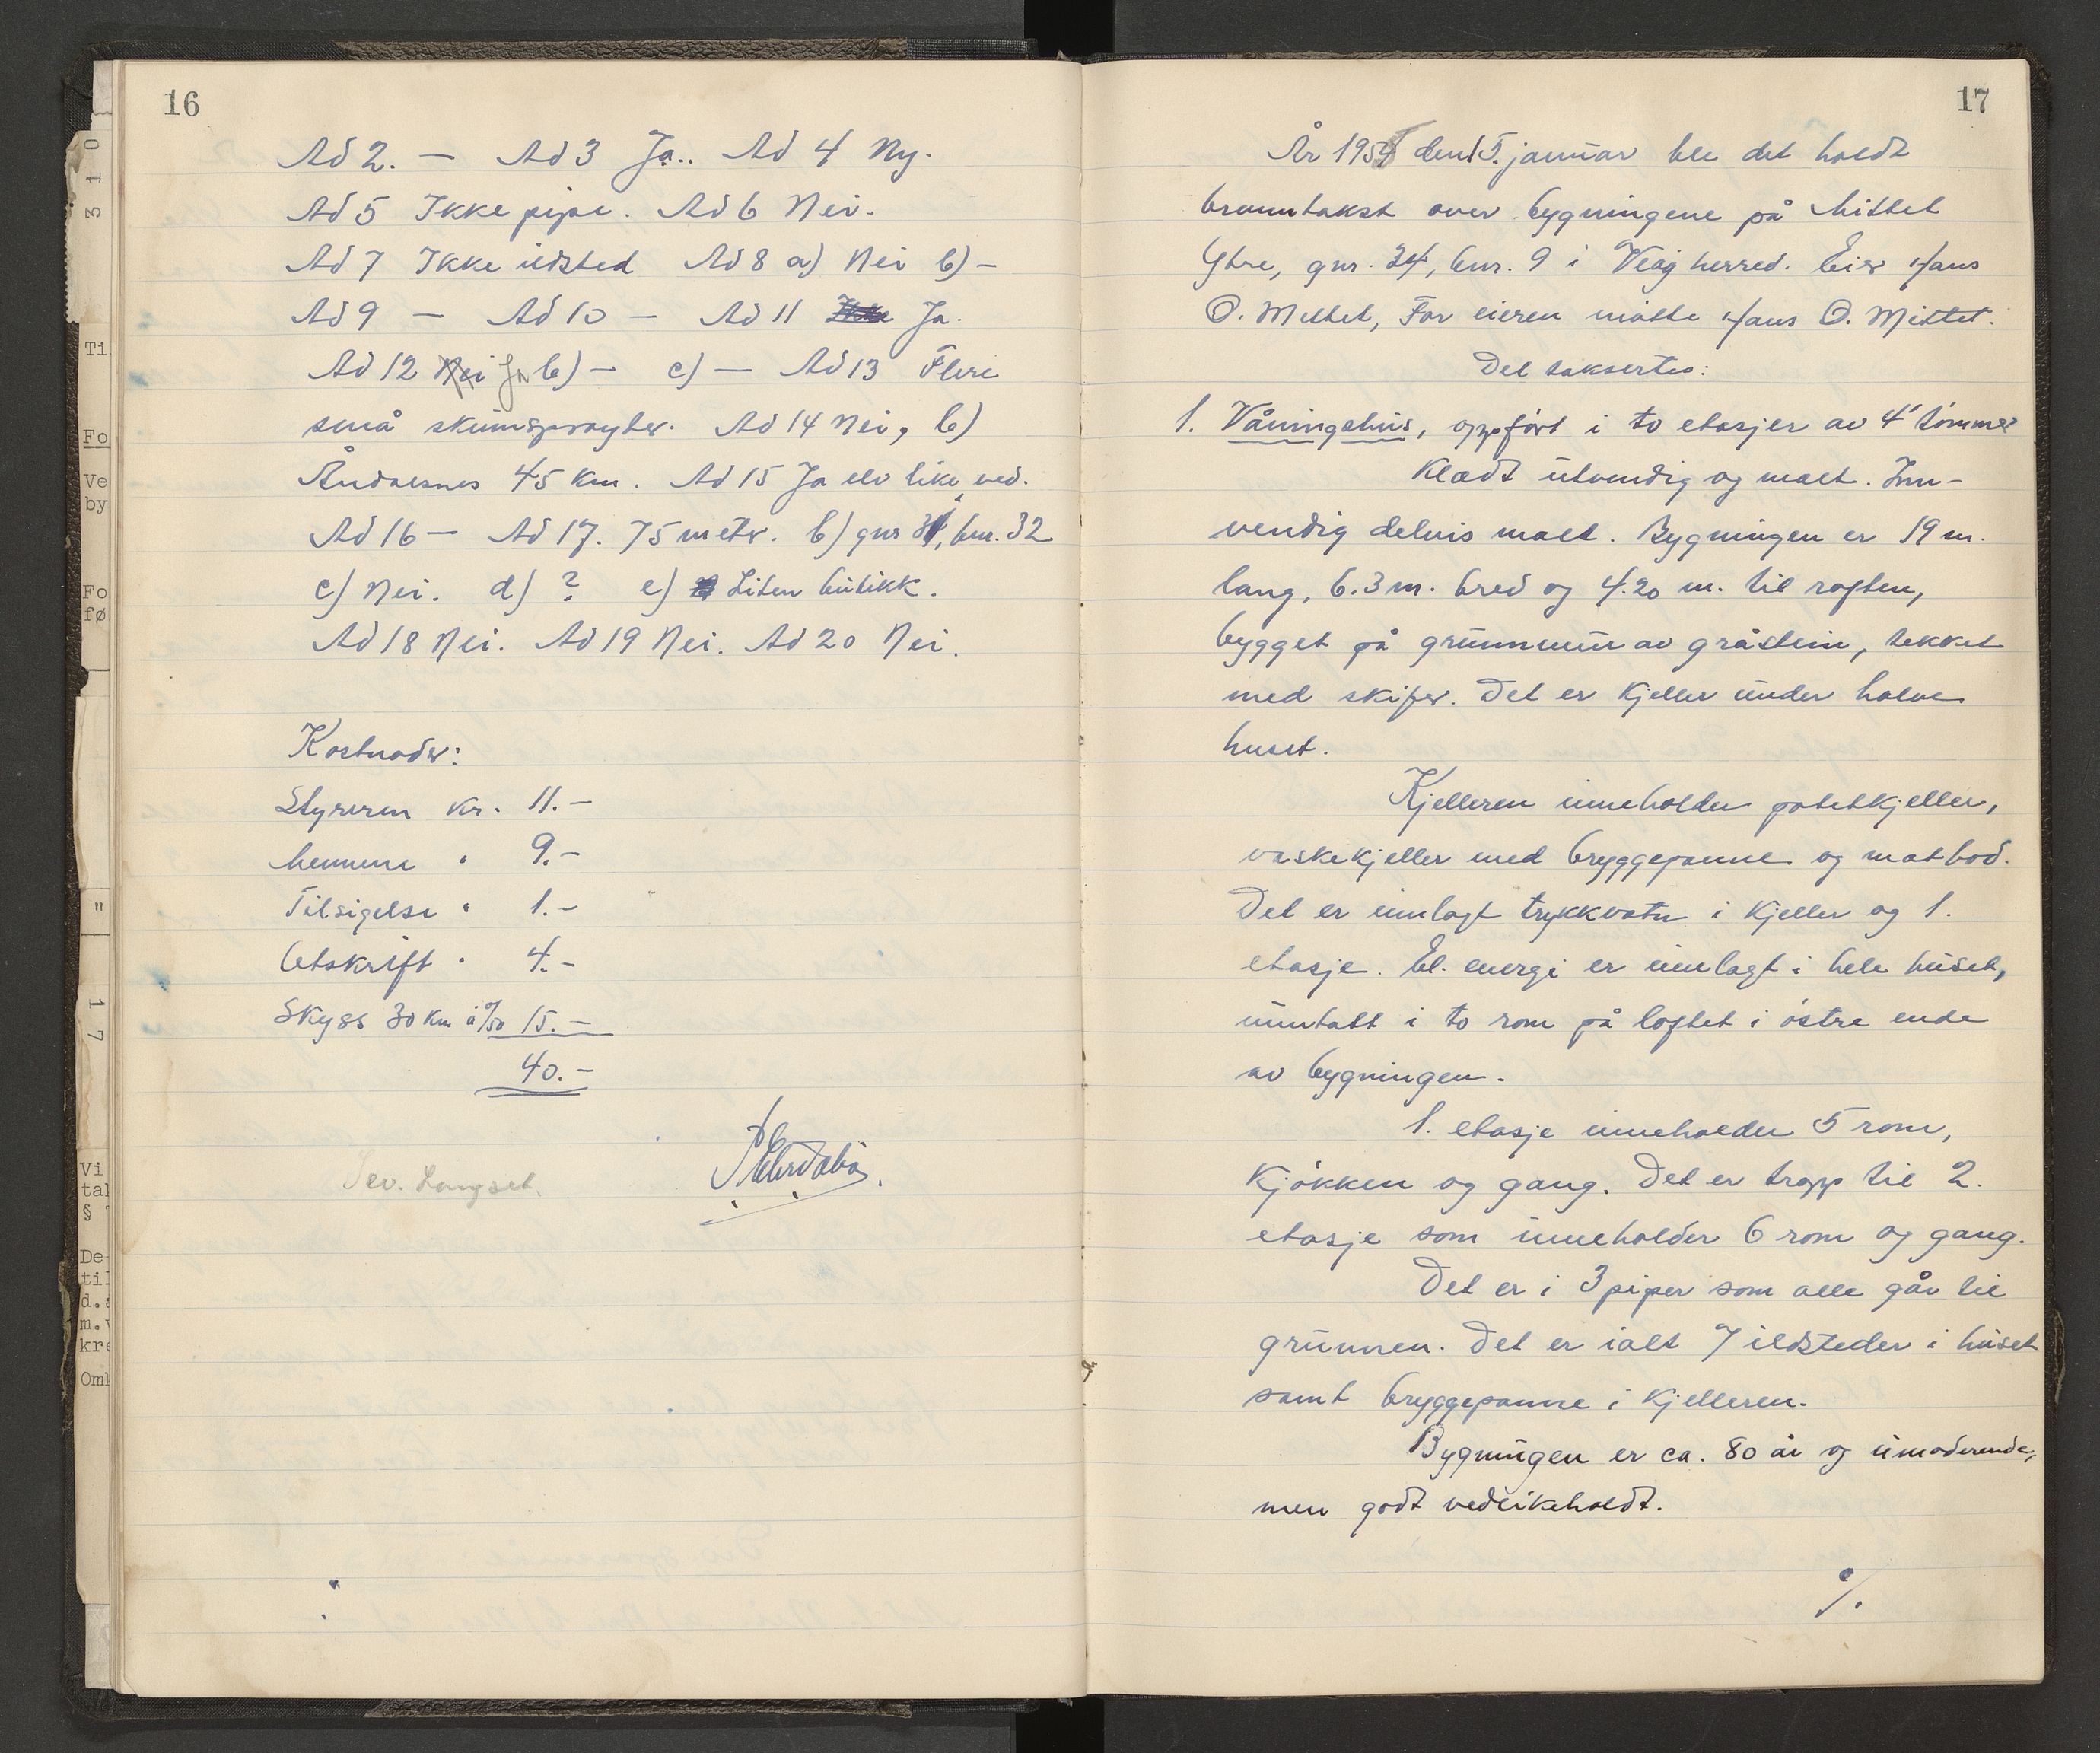 16
Ad 2. — Ad 3 Ja.. Ad 4 Ny.
Ad 5 Ikke pipe. Ad 6 Nei.
Ad 7 Ikke ildsted Ad 8 a) Nei b) —
Ad 9 — Ad 10 — Ad 11 Ja.
Ad 12 Nei Ja b) — c) — Ad 13 Flere
små skumsprøyter. Ad 14 Nei, b)
Åndalsnes 45 km. Ad 15 Ja elv like ved.
Ad 16 — Ad 17. 75 meter. b) gnr 34, bnr. 32
c) Nei. d) ? e) Liten butikk.
Ad 18 Nei. Ad 19 Nei. Ad 20 Nei.
Kostnader:
Styreren kr. 11.—
Mennene " 9.—
Tilsigelse " 1.—
Utskrift " 4.—
Skyss 30 km à 0/50 15.—
40.—
Sev. Langset.
17
År 1955 den 15. januar ble det holdt
branntakst over bygningene på Mittet
Ytre, gnr. 34, bnr. 9 i Veøy herred. Eier Hans
O. Mittet, For eieren møtte Hans O. Mittet.
Det taksertes:
1. Våningshus, oppført i to etasjer av 4" tømmer
Kledt utvendig og malt. Inn-
vendig delvis malt. Bygningen er 19 m.
lang, 6.3 m. bred og 4.20 m. til raften,
bygget på grunnmur av gråstein, tekket
med skifer. Det er kjeller under halve
huset.
Kjelleren inneholder potetkjeller,
vaskekjeller med bryggepanne og matbod.
Det er innlagt trykkvatn i kjeller og 1.
etasje. El. energi er innlagt i hele huset,
unntatt i to rom på loftet i østre ende
av bygningen.
1. etasje inneholder 5 rom,
kjøkken og gang. Det er trapp til 2.
etasje som inneholder 6 rom og gang.
Det er i 3 piper som alle går til
grunnen. Det er ialt 7 ildsteder i huset
samt bryggepanne i kjelleren.
Bygningen er ca. 80 år og umoderende,
men godt vedlikeholdt.
%.
0
1
3
Ti
Fo
Ve
by
Fo
fø
"
1
7
Vi
tal
§
De
til
d.a
m.v
kre
Oml